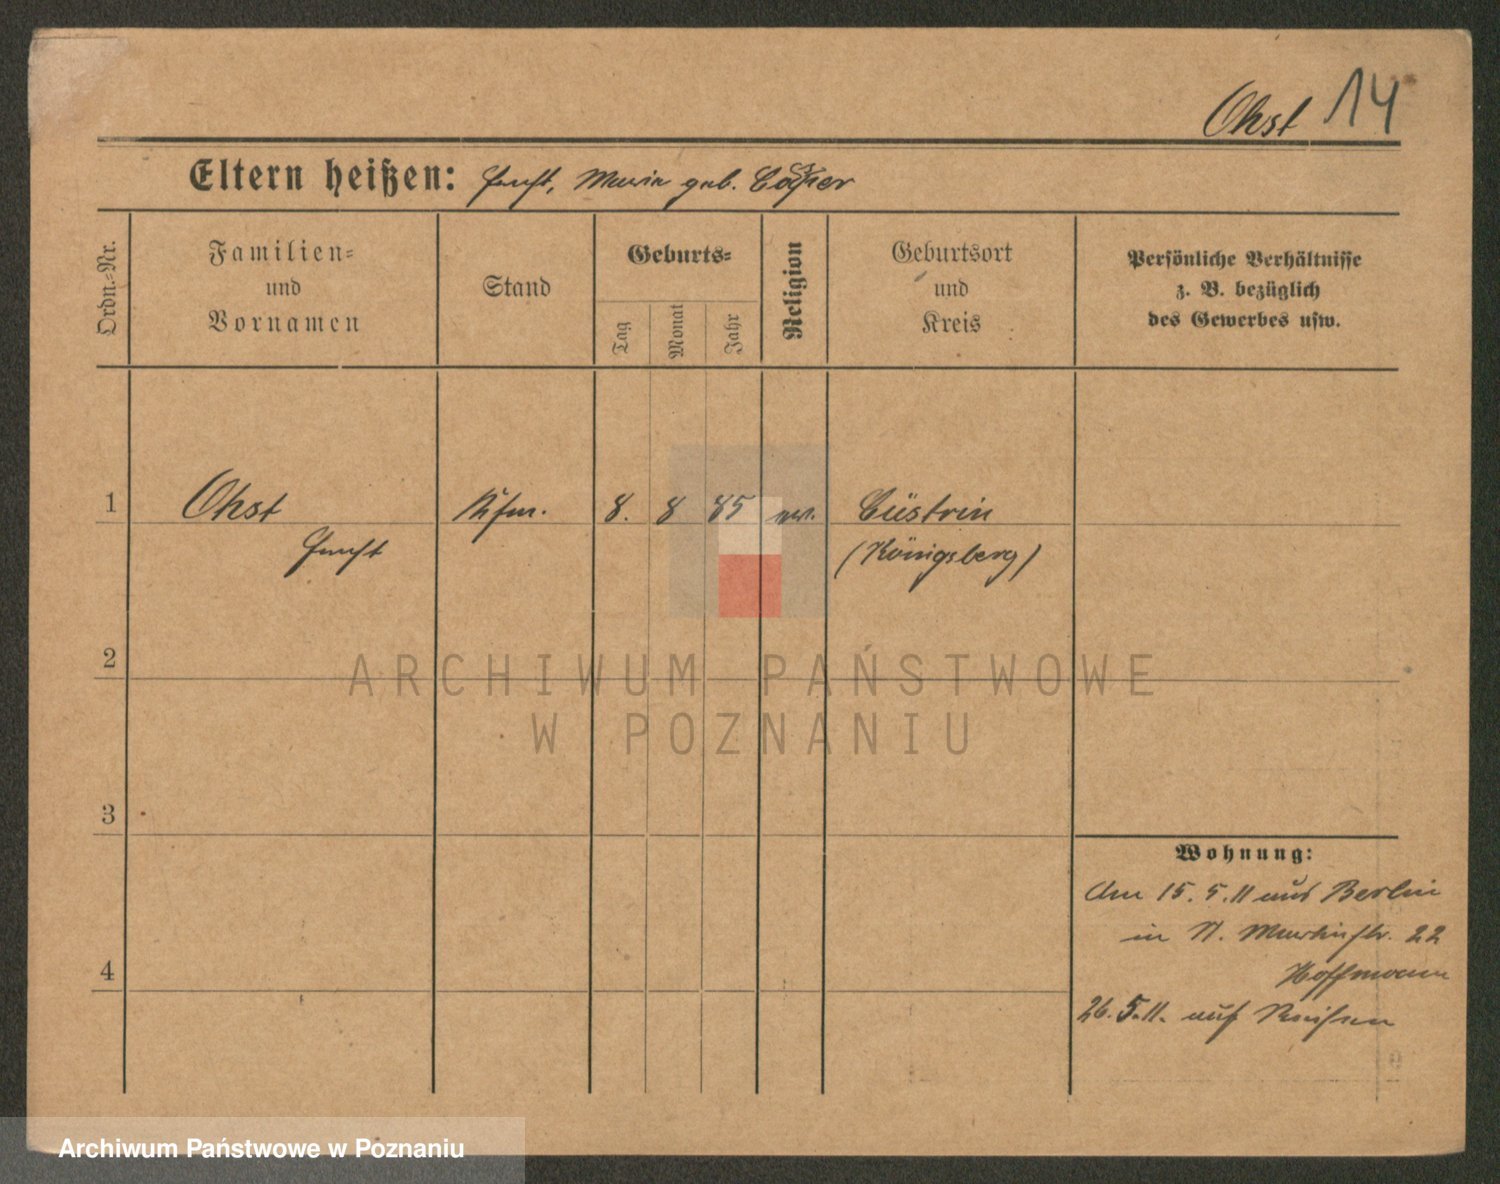 Ohst 14
Eltern heißen: Ernst, Maria geb.
Ordn.-Nr.
Familien-
und
Vornamen
Stand
Geburts-
Tag
Monat
Jahr
Religion
Geburtsort
und
Kreis
Persönliche Verhältnisse
z. B. bezüglich
des Gewerbes usw.
1 Ohst Kfm. 8. 8 85 ev. Cüstrin
Ernst (Königsberg)
2
3
4
Wohnung:
Am 15. 5. 11 aus Berlin
in St. Martinstr. 22
Hoffmann
26. 5. 11. auf Reisen
ARCHIWUM PAŃSTWOWE
W POZNANIU
Archiwum Państwowe w Poznaniu